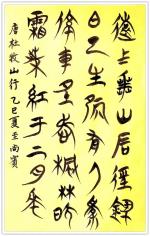 遠上寒山石徑斜
白云生處有人家
停車坐愛楓林晚
霜葉紅于二月花
唐杜牧山行乙巳夏至尚賓